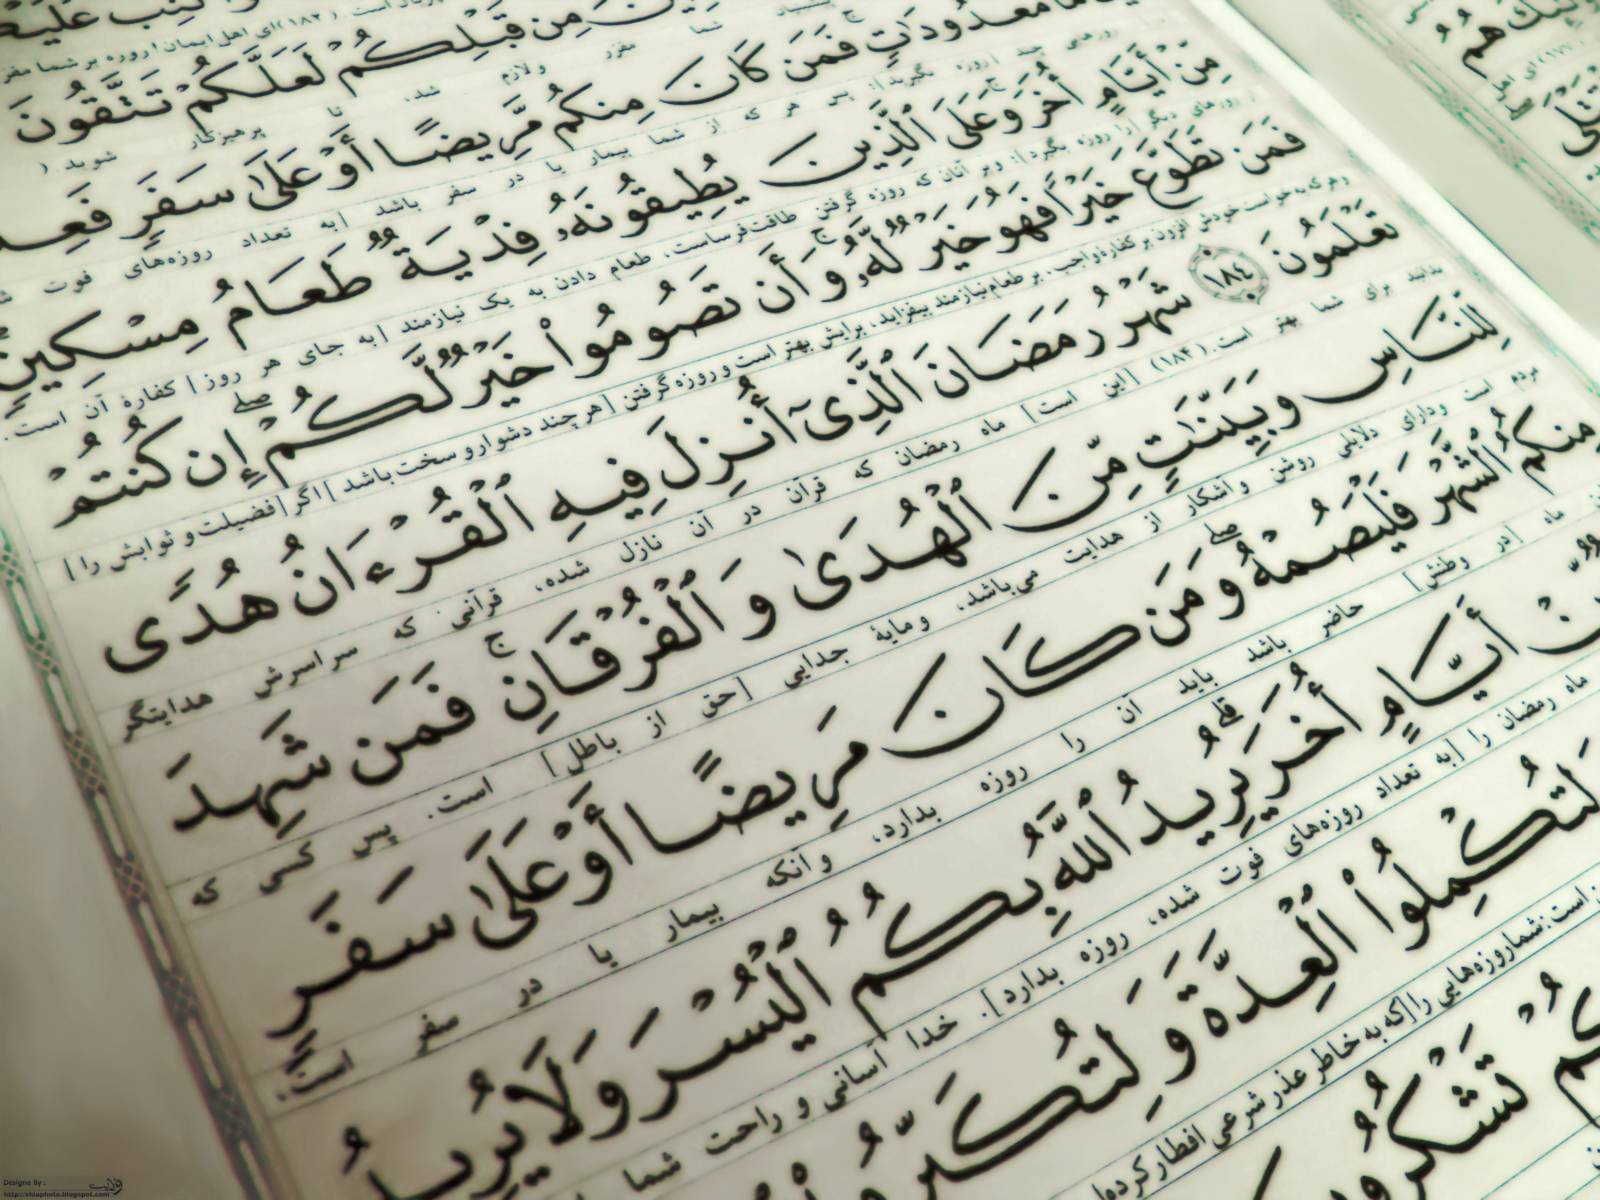 مِن قَبْلِكُمْ لَعَلَّكُمْ تَتَّقُونَ
(١٨٢) ای اهل ایمان! روزه بر شما مقرر
شما مقرر و لازم شد، تا پرهیزکار شوید (
مَعْدُودَاتٍ فَمَن كَانَ مِنكُم مَّرِيضًا أَوْ عَلَىٰ سَفَرٍ
روزهایی چند [روزه بگیرید]؛ پس هر که از شما بیمار یا در سفر باشد [به تعداد روزه‌های فوت
مِّنْ أَيَّامٍ أُخَرَ وَعَلَى ٱلَّذِينَ يُطِيقُونَهُۥ فِدْيَةٌ طَعَامُ مِسْكِينٍ
از روزهای دیگر [را روزه بگیرد]؛ و بر آنان که روزه گرفتن طاقت‌فرساست، طعام دادن به یک نیازمند [به جای هر روز] کفارهٔ آن است.
فَمَن تَطَوَّعَ خَيْرًا فَهُوَ خَيْرٌ لَّهُۥ ۚ وَأَن تَصُومُوا۟ خَيْرٌ لَّكُمْ ۖ إِن كُنتُمْ
و هر که به خواست خودش افزون بر کفارهٔ واجب، بر طعام نیازمند بیفزاید، برایش بهتر است و روزه گرفتن [هر چند دشوار و سخت باشد] اگر [فضیلت و ثوابش را]
تَعْلَمُونَ ١٨٤ شَهْرُ رَمَضَانَ ٱلَّذِىٓ أُنزِلَ فِيهِ ٱلْقُرْءَانُ هُدًى
بدانید برای شما بهتر است. (١٨٤) [این است] ماه رمضان که قرآن در آن نازل شده، قرآنی که سراسرش هدایتگر
لِّلنَّاسِ وَبَيِّنَٰتٍ مِّنَ ٱلْهُدَىٰ وَٱلْفُرْقَانِ ۚ فَمَن شَهِدَ
مردم است و دارای دلایلی روشن و آشکار از هدایت می‌باشد، و مایهٔ جدایی [حق از باطل] است. پس کسی که
مِنكُمُ ٱلشَّهْرَ فَلْيَصُمْهُ ۖ وَمَن كَانَ مَرِيضًا أَوْ عَلَىٰ سَفَرٍ
ماه [در وطنش] حاضر باشد باید آن را روزه بدارد، و آنکه بیمار یا در سفر است،
أَيَّامٍ أُخَرَ ۗ يُرِيدُ ٱللَّهُ بِكُمُ ٱلْيُسْرَ وَلَا يُرِيدُ
ماه رمضان را [به تعداد روزه‌های فوت شده، روزه بدارد]. خدا آسانی و راحت شما
لِتُكْمِلُوا۟ ٱلْعِدَّةَ وَلِتُكَبِّرُوا۟
است: شما روزه‌هایی را [که به خاطر عذر شرعی افطار کرده‌اید
تَشْكُرُونَ
Designe By :
http://shiaphoto.blogspot.com